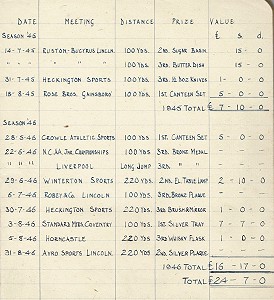 DATE MEETING DISTANCE PRIZE VALUE
SEASON '45 £ s. d.
14-7-45 RUSTON-BUCYRUS LINCOLN. 100 YDS. 2ND. SUGAR BASIN 15 - 0
" " " " " 100 YDS. 3RD. BUTTER DISH 15 - 0
31-7-45 HECKINGTON SPORTS 100 YDS. 3RD. ½ DOZ KNIVES 1 - 0 - 0
18-8-45 ROSE BROS. GAINSBORO' 100 YDS. 1ST. CANTEEN SET 5 - 0 - 0
1945 TOTAL £ 7 - 10 - 0
SEASON '46
28-5-46 CROWLE ATHLETIC SPORTS 100 YDS. 1ST. CANTEEN SET 5 - 0 - 0
22-6-46 N.C.A.A. JNR. CHAMPIONSHIPS 100 YDS. 3RD. BRONZE MEDAL
" " " LIVERPOOL LONG JUMP 3RD. " "
29-6-46 WINTERTON SPORTS 220 YDS. 2ND. EL. TABLE LAMP 2 - 10 - 0
6-7-46 ROBEY & CO. LINCOLN 100 YDS. 3RD. BRONZE PLAQUE
30-7-46 HECKINGTON SPORTS 220 YDS. 3RD. BRUSH & MIRROR 1 - 0 - 0
3-8-46 STANDARD MTRS. COVENTRY 100 YDS. 1ST SILVER TRAY 7 - 7 - 0
5-8-46 HORNCASTLE 220 YDS. 3RD WHISKY FLASK 1 - 0 - 0
31-8-46 AYRO SPORTS LINCOLN. 220 YDS. 2ND. SILVER PLAQUE
1946 TOTAL £16 - 17 - 0
TOTAL £24 - 7 - 0